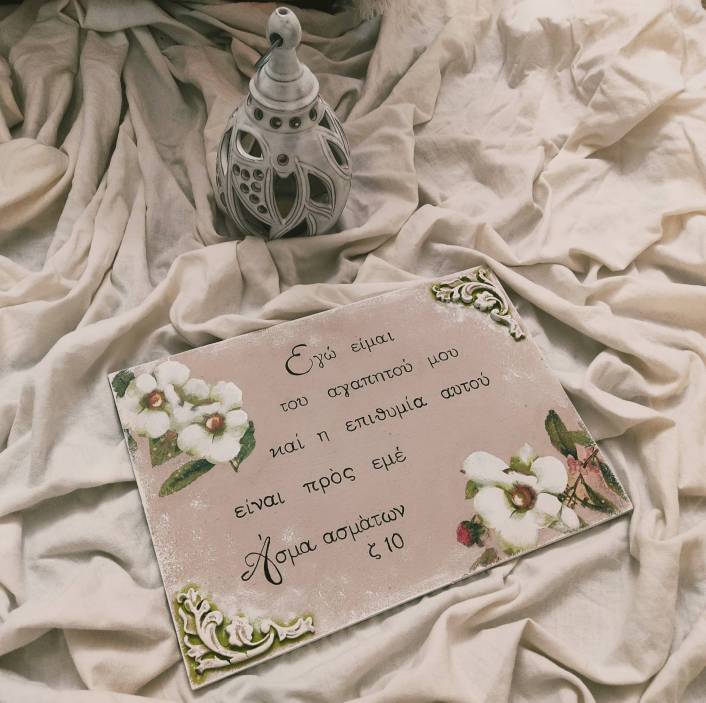 Εγώ είμαι
του αγαπητού μου
και η επιθυμία αυτού
είναι πρὸς εμέ
Άσμα ασμὰτων
ζ 10